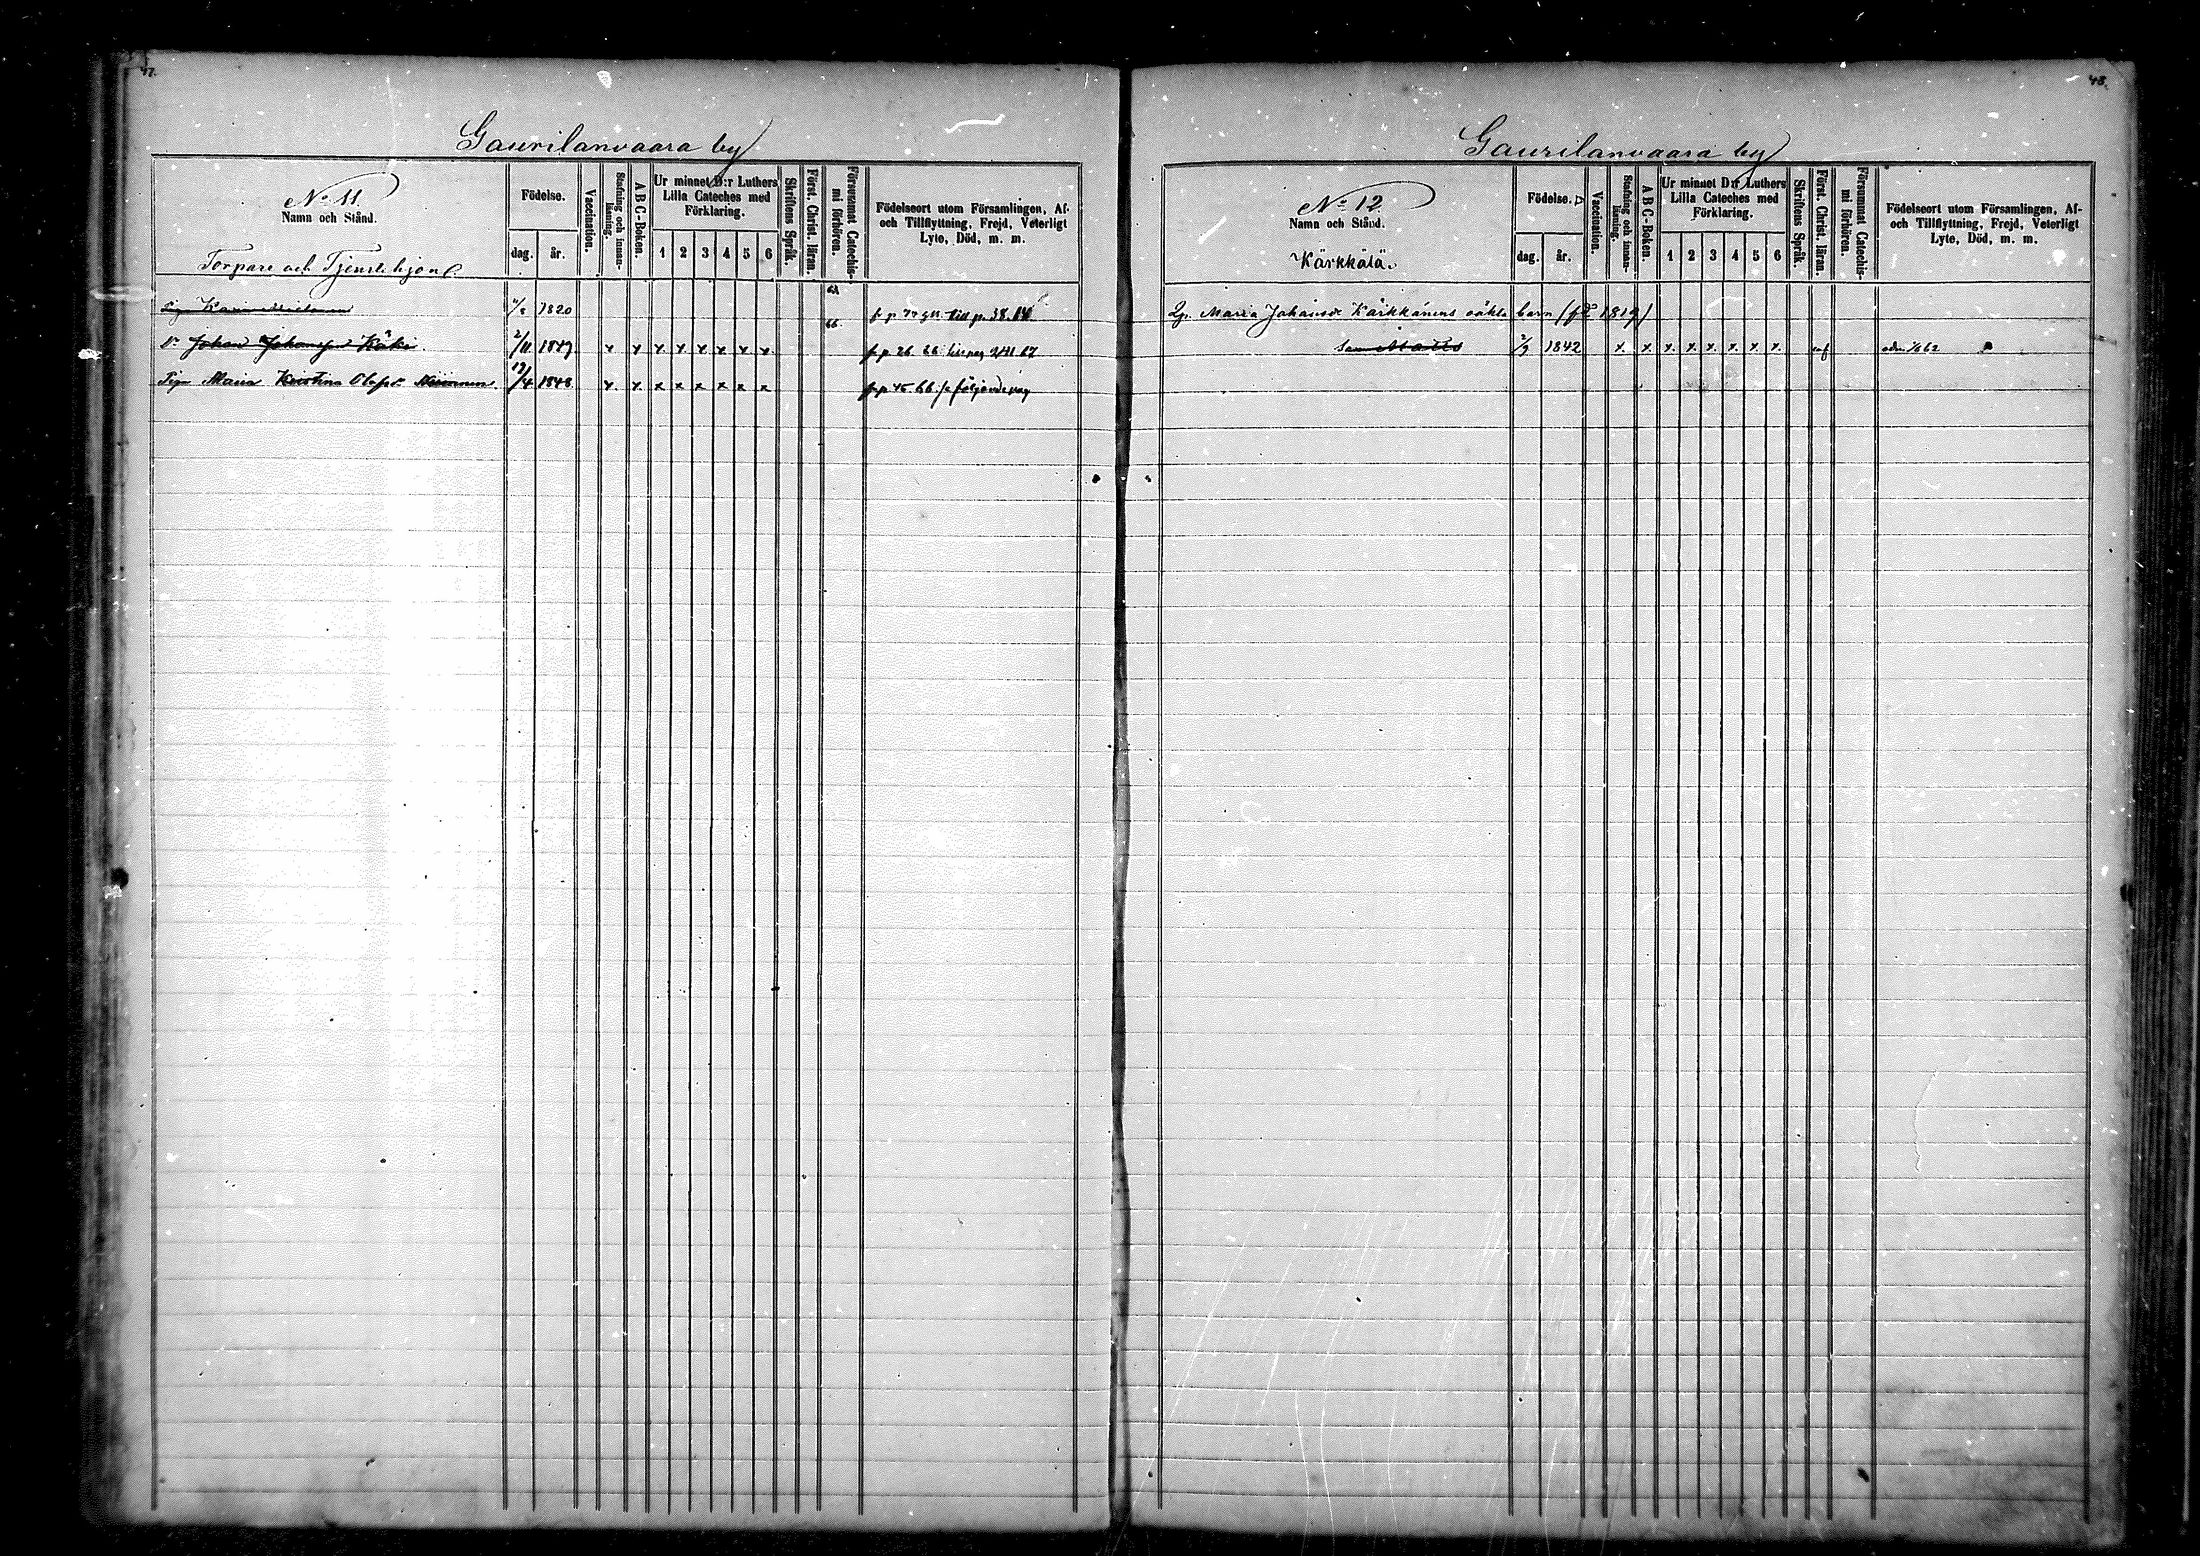 47.
Gaurilanvaara by
No 11.
Namn och Stånd.
Torpare och Tjenstehjon
Födelse.
dag.
år.
Vaccination.
Stafning och innan-
läsning.
A B C-Boken.
Ur minnet D:r Luthers
Lilla Cateches med
Förklaring.
1 2 3 4 5 6
Skriftens Språk.
Först. Christ. läran.
Försummat Catechis-
mi förhören.
Födelseort utom Församlingen, Af-
och Tillflyttning, Frejd, Veterligt
Lyte, Död, m. m.
1820
Johan Käki 2/11 1849 x x x x x x x x
66.
Maria Kristina 12/4 1848 x x x x x x x x
48.
Gaurilanvaara by
No 12
Namn och Stånd.
Kärkkälä.
Födelse.
dag.
år.
Vaccination.
Stafning och innan-
läsning.
A B C-Boken.
Ur minnet D:r Luthers
Lilla Cateches med
Förklaring.
1 2 3 4 5 6
Skriftens Språk.
Först. Christ. läran.
Försummat Catechis-
mi förhören.
Födelseort utom Församlingen, Af-
och Tillflyttning, Frejd, Veterligt
Lyte, Död, m. m.
Maria Johansdr Kärkkänens oäkta barn (fd 1819)
Matts 2/9 1842 x. x. x. x. x. x. x. x.